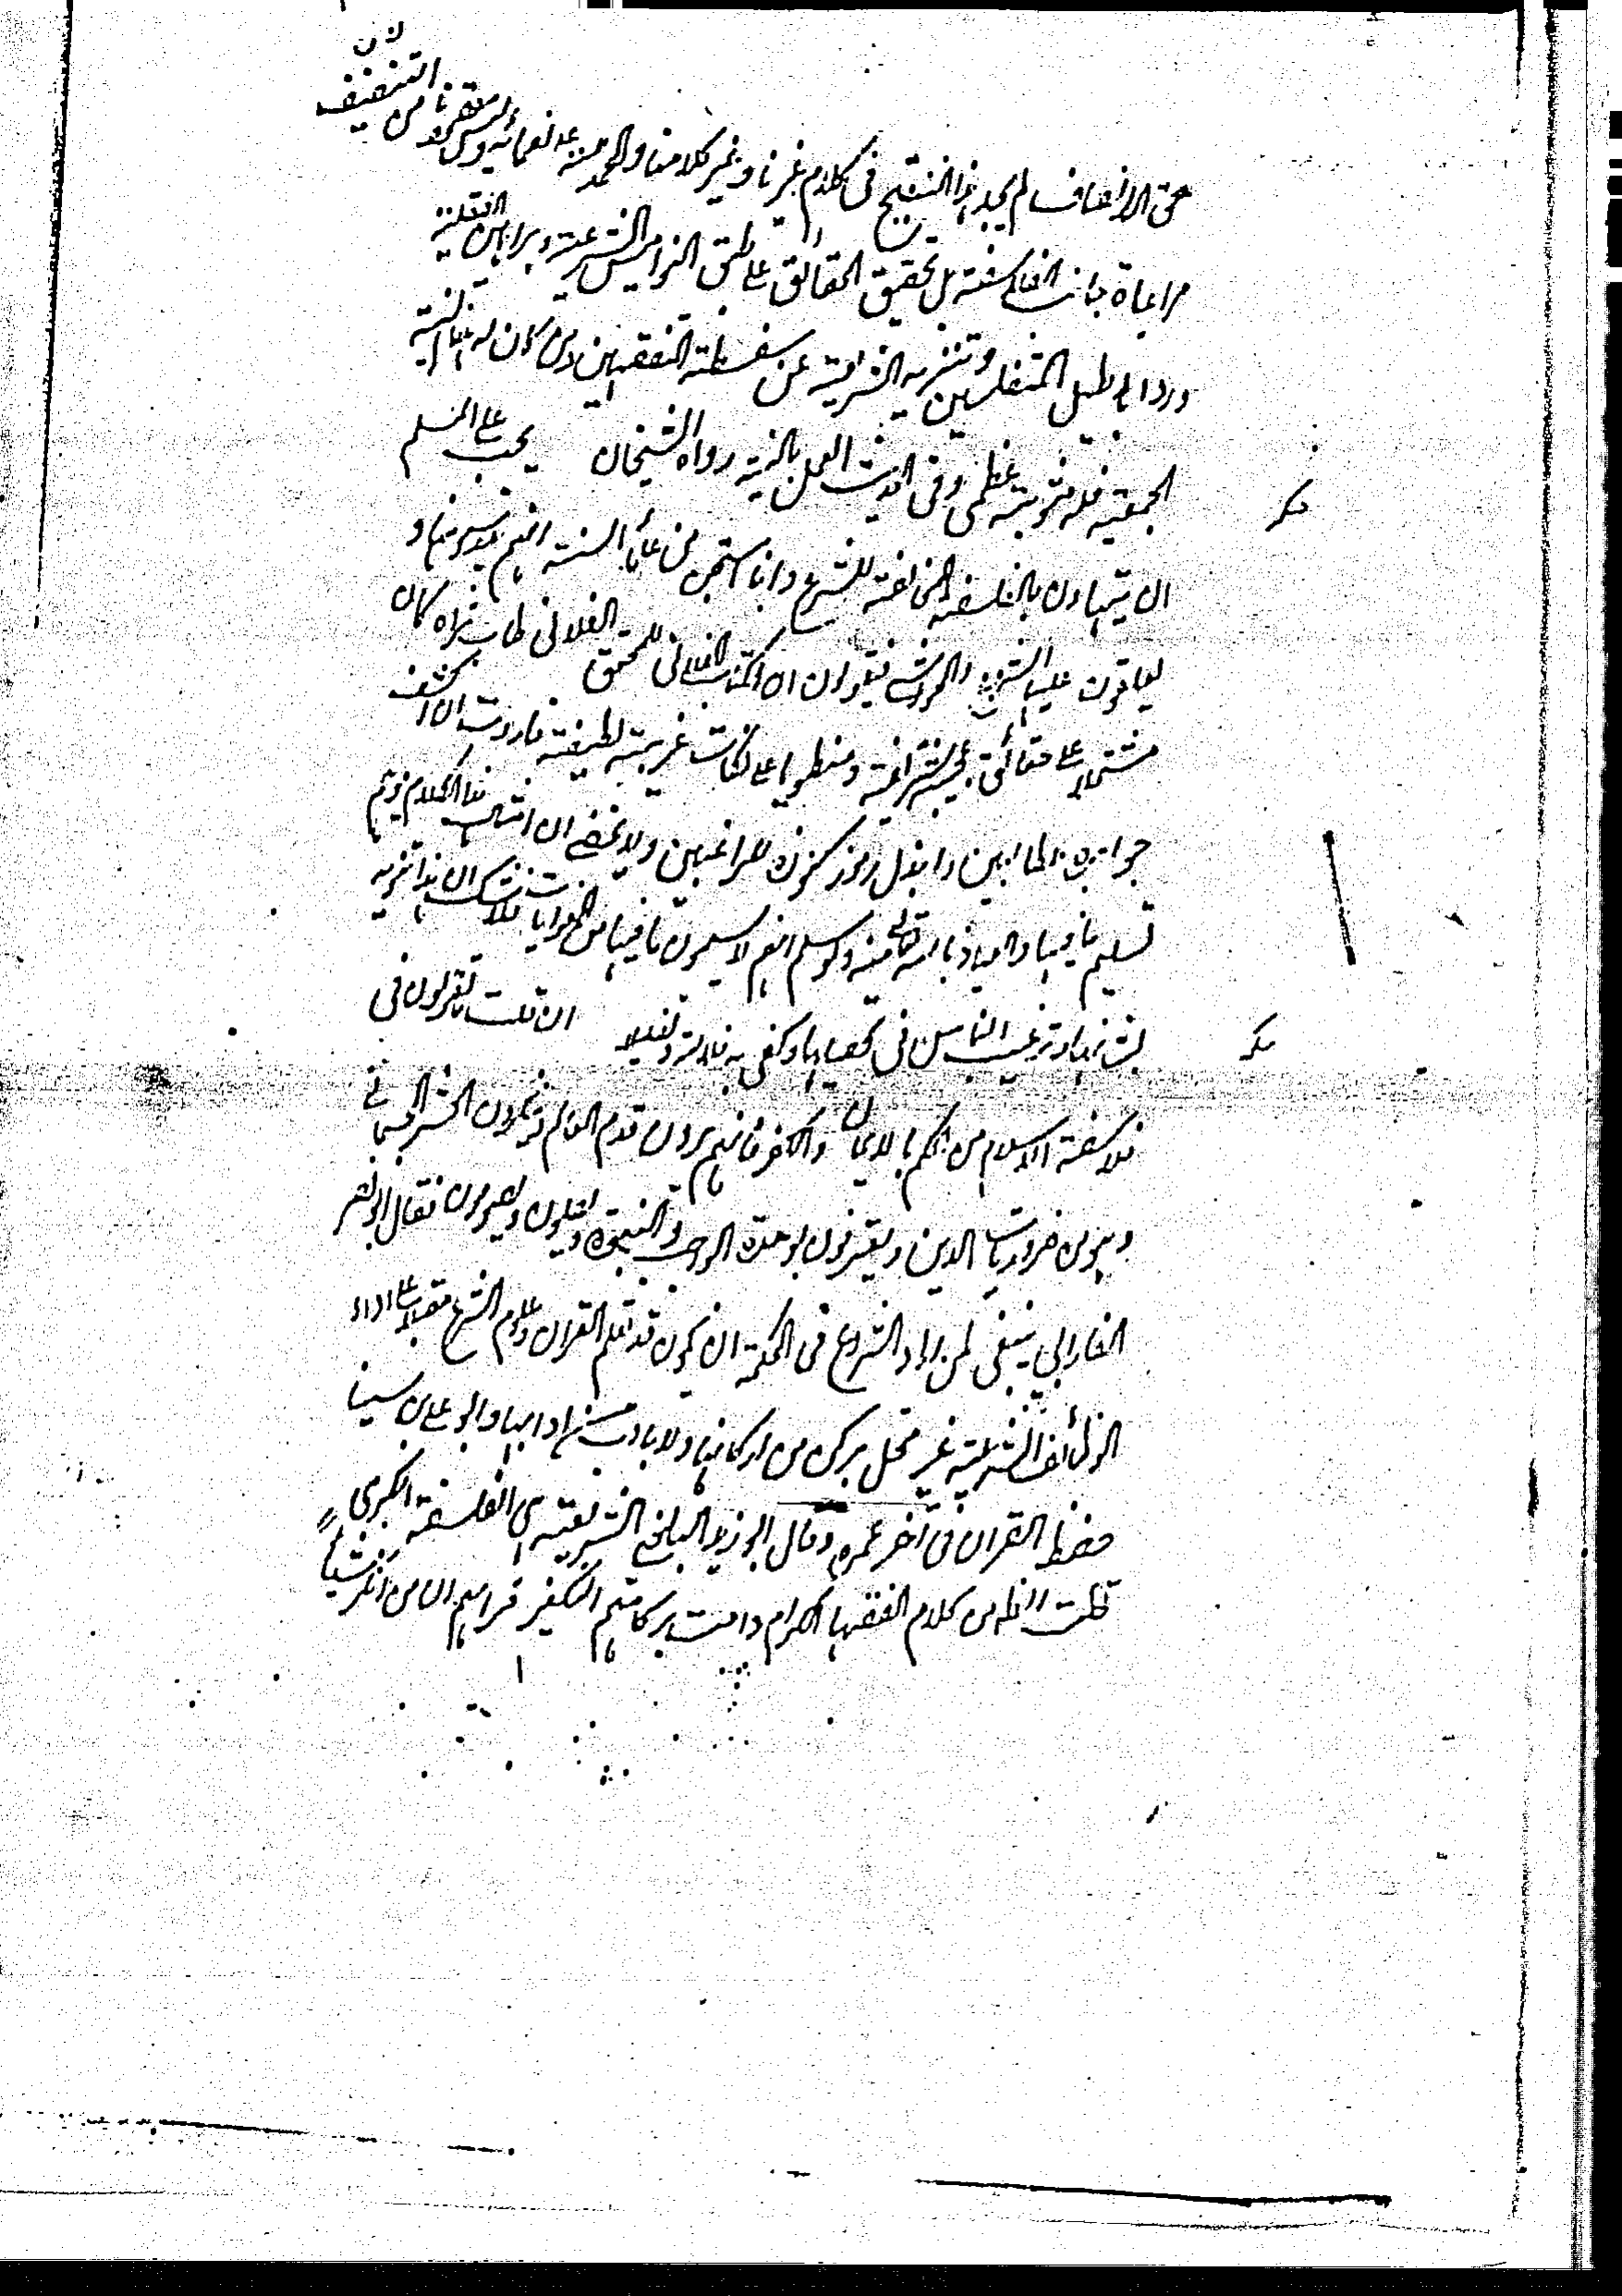 حق الانصاف لم يجد هذا التنقيح في كلام غيرنا وغير كلامنا والحمد لله على نعمائه وليس مقصودنا من التصنيف
مراعاة جانب الفلاسفة بل تحقيق الحقائق على طبق النواميس الشرعية وبراهين العقلية
وردا لاباطيل المتفلسفين وتنزيه الشريعة عن سفسطة المتفقهين ومن كان له هذا النية
الحقية فله مثوبة عظمى وفي الحديث العمل بالنية رواه الشيخان يجب على المسلم
ان يتهاون بالفلسفة المخالفة للشرع وانا استعجب من علماء السنة انهم يدرسونها و
يعلقون عليها الشروح والحواشي فيقولون ان الكتاب الفلاني للمحقق الفلاني طاب ثراه كان
مشتملا على حقائق عجيبة شريفة ومنطويا على نكات غريبة لطيفة فاردت ان اكشف
جواهره للطالبين وابذل رموز كنوزه للراغبين ولا يخفى ان امثال هذا الكلام يوهم
تسليم ما فيها والعياذ بالله تعالى منه ولو سلم انهم لا يسلمون ما فيها من الهزليات فلا شك ان هذا تنويه
بشانها وترغيب الناس في تحصيلها وكفى به ضلالة وتضليلا ان قلت ما تقولون في
فلاسفة الاسلام من الحكم بالايمان والكفر فانهم يرون قدم العالم وينكرون الحشر الجسماني
وهو من ضروريات الدين ويعترفون بوحدة الواجب والنبوة ويصلون ويصومون فقال ابو نصر
الفارابي ينبغي لمن اراد الشروع في الحكمة ان يكون قد تعلم القران وعلوم الشرع مقبلا على اداء
الوظائف الشرعية غير مخل بركن من اركانها ولا بادب من ادابها وابو علي بن سينا
حفظ القران في آخر عمره وقال ابو زيد البلخي الشريعة هي الفلسفة الكبرى
قلت الظاهر من كلام الفقهاء الكرام دامت بركاتهم التكفير فرايهم ان من انكر شيئا